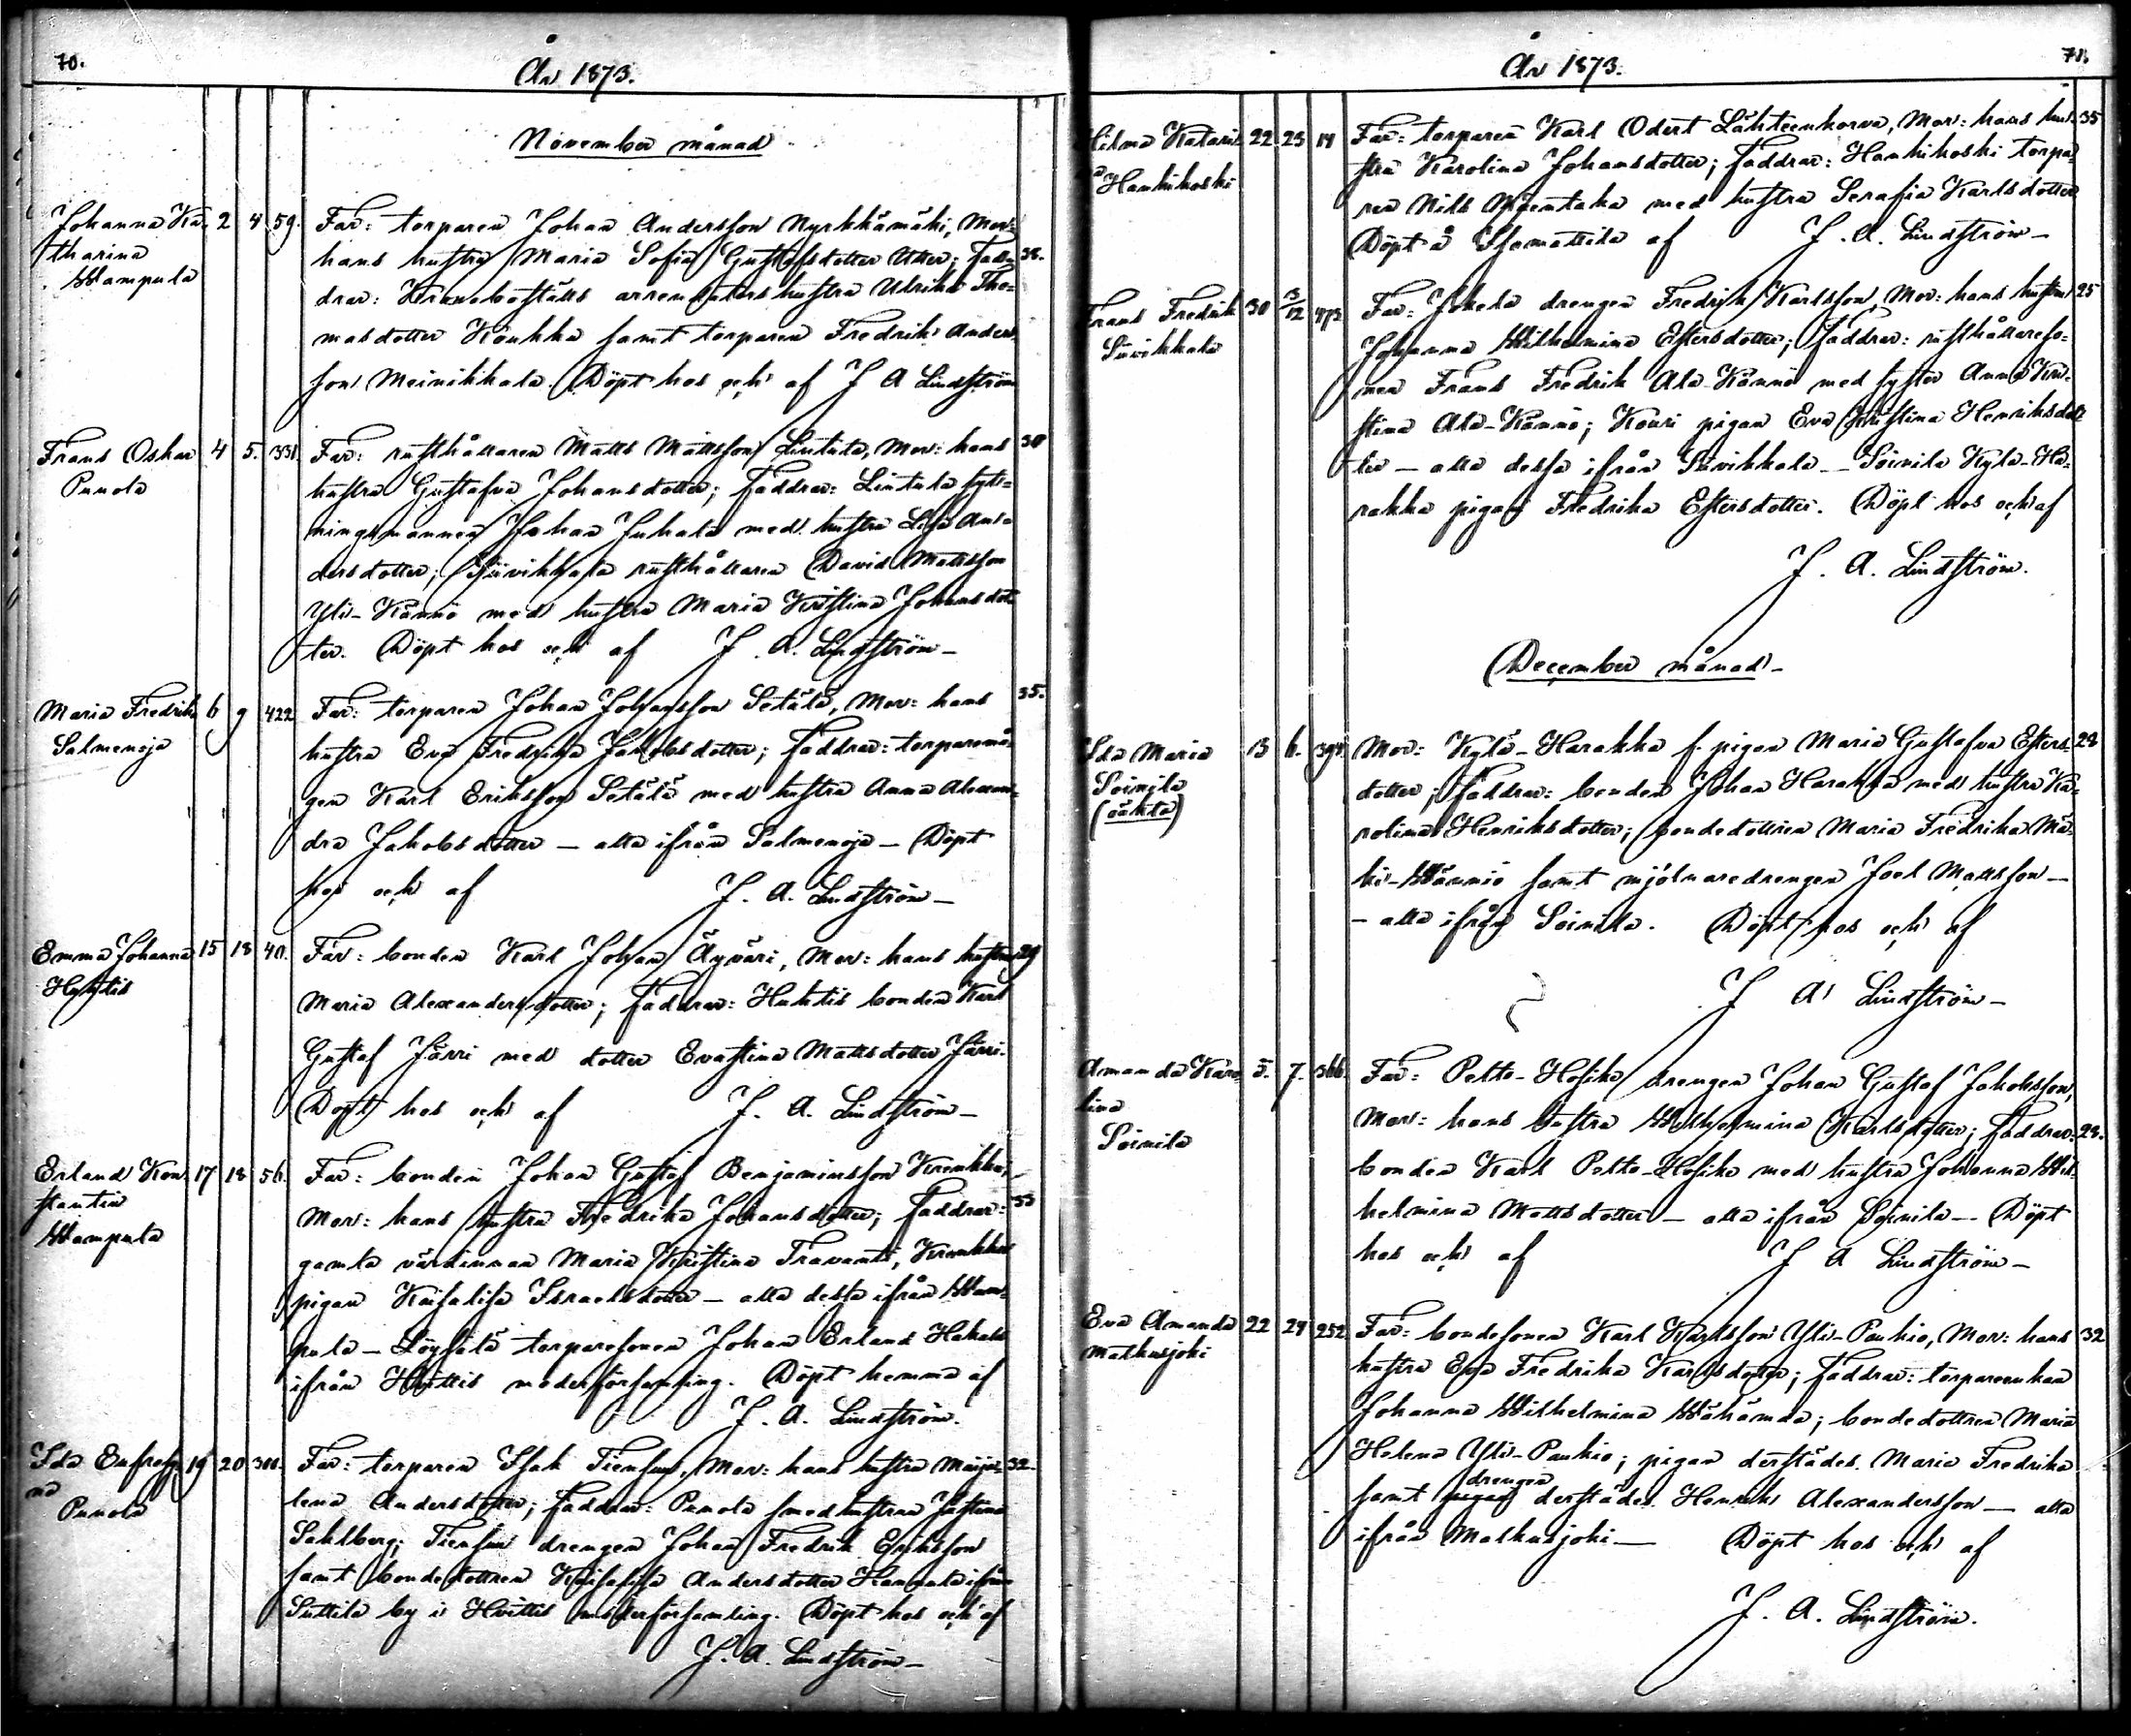 70.
År 1873.
November månad
Johanna Ka- 2 4 59. Far: torparen Johan Andersson Nyrkkämäki, Mor:
tharina hans hustru Maria Sofia Gustafsdotter Utter; Fad- 38.
Wampula drar: Kronoboställs arrendators hustru Ulrika Tho-
masdotter Koukka samt torparen Fredrik Anders-
son Meinikkala. Döpt hos och af J A Lindström
Frans Oskar 4 5. 331. Far: rusthållaren Matts Mattsson Liutula, Mor: hans 30
Punola hustru Gustafva Johansdotter; faddrar: Liutula syt-
ningsmannen Johan Juhala med hustru Lisa An-
dersdotter; Siivikkala rusthållaren David Mattsson
Yli-Kännö med hustru Maria Kristina Johansdot-
ter. Döpt hos och af J. A. Lindström-
Maria Fredrika 6 9 422 Far: torparen Johan Johansson Setälä, Mor: hans 35.
Salmenoja hustru Eva Fredrika Jakobsdotter; faddrar: torparemå-
gen Karl Eriksson Setälä med hustru Anna Alexan-
dra Jakobsdotter – alla ifrån Salmenoja – Döpt
hos och af J. A. Lindström-
Emma Johanna 15 18 40. Far: bonden Karl Johan Äyväri, Mor: hans hustru 29
Huhtis Maria Alexandersdotter; faddrar: Huhtis bonden Karl
Gustaf Järri med dotter Evastina Mattsdotter Järri.
Döpt hos och af J. A. Lindström-
Erland Kon- 17 18 56. Far: bonden Johan Gustaf Benjaminsson Krenkku,
stantin Mor: hans hustru Fredrika Johansdotter; Faddrar: 33
Wampula gamla värdinnan Maria Kristina Travanti,
pigan Kaisalisa Israelsdotter – alla dessa ifrån Wam-
pula – torparesonen Johan Erland
ifrån Hvittis moderförsamling. Döpt hemma af
J. A. Lindström.
Ida Eufrosy- 19 20 311. Far: torparen Isak Tiensuu, Mor: hans hustru Maija- 32.
na lena Andersdotter; faddrar: Punola smedhustrun Justina
Punola Sahlberg; Tiensuu drengen Johan Fredrik Eriksson
samt bondedottren Kaisalisa Andersdotter Hannula ifrån
Suttila by i Hvittis moderförsamling. Döpt hos och af
J. A. Lindström-
71.
År 1873.
Hilma Katari- 22. 23 14 Far: torparen Karl Odert Lähteenkorva, Mor: hans hu- 35
na Hankikoski stru Karolina Johansdotter; faddrar: Hankikoski torpa-
ren Nils med hustru Serafia Karlsdotter
Döpt å af J. A. Lindström-
Frans Fredrik 30 3/12 473 Far: Jokela drengen Fredrik Karlsson, Mor: hans hustru 25
Siivikkala Johanna Wilhelmina Estersdotter; faddrar: rusthållareso-
nen Frans Fredrik Ala-Kännö med syster Anna Kri-
stina Ala-Kännö; Kouri pigan Eva Kristina Henriksdot-
ter – alla dessa ifrån Siivikkala – Soinila Kylä-Ha-
rakka pigan Fredrika Estersdotter. Döpt hos och af
J. A. Lindström.
December månad-
Ida Maria 13 6. 391. Mor: Kylä-Harakka f. pigan Maria Gustafva Esters- 28
Soinila dotter; faddrar: bonden Johan Harakka med hustru Ka-
(oäkta) rolina Henriksdotter; bondedottren Maria Fredrika Mä-
ki-Wänniö samt mjölnaredrengen Joel Mattsson –
– alla ifrån Soinila. Döpt hos och af
J A Lindström-
Amanda Karo- 5. 7. 366. Far: Pelto-Hosike drengen Johan Gustaf Jakobsson,
lina Mor: hans hustru Wilhelmina Karlsdotter; faddrar: 28.
Soinila bonden Karl Pelto-Hosike med hustru Johanna Wil-
helmina Mattsdotter – alla ifrån Soinila – Döpt
hos och af J A Lindström-
Eva Amanda 22 24 252 Far: bondesonen Karl Karlsson Yli-Paukio, Mor: hans 32
Matkusjoki hustru Eva Fredrika Karlsdotter; faddrar: torpareenkan
Johanna Wilhelmina; bondedottren Maria
Helena Yli-Paukio; pigan derstädes Maria Fredrika
drengen
samt pigan derstädes Henrik Alexandersson – alla
ifrån Matkusjoki – Döpt hos och af
J. A. Lindström.